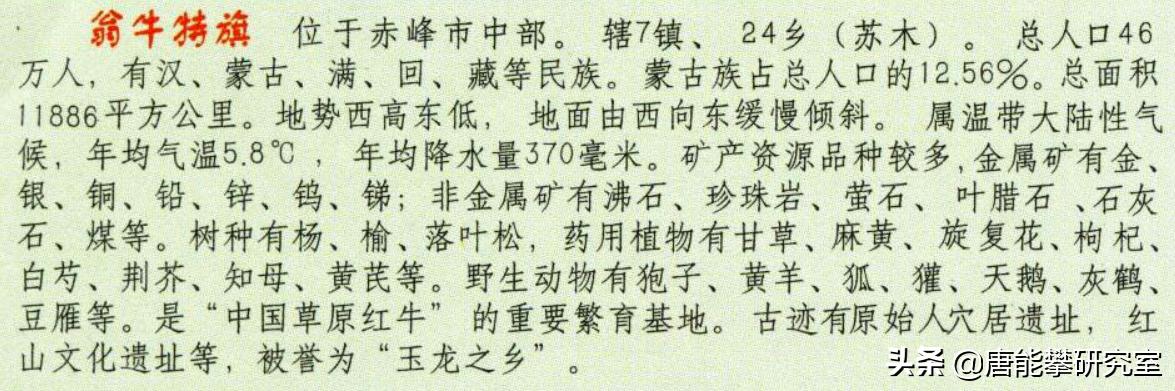 翁牛特旗 位于赤峰市中部。辖7镇、24乡(苏木)。总人口46
万人,有汉、蒙古、满、回、藏等民族。蒙古族占总人口的12.56%。总面积
11886平方公里。地势西高东低,地面由西向东缓慢倾斜。属温带大陆性气
候,年均气温5.8℃,年均降水量370毫米。矿产资源品种较多,金属矿有金、
银、铜、铅、锌、钨、锑;非金属矿有沸石、珍珠岩、萤石、叶腊石、石灰
石、煤等。树种有杨、榆、落叶松,药用植物有甘草、麻黄、旋复花、枸杞、
白芍、荆芥、知母、黄芪等。野生动物有狍子、黄羊、狐、獾、天鹅、灰鹤、
豆雁等。是“中国草原红牛”的重要繁育基地。古迹有原始人穴居遗址,红
山文化遗址等,被誉为“玉龙之乡”。
头条 @唐能攀研究室